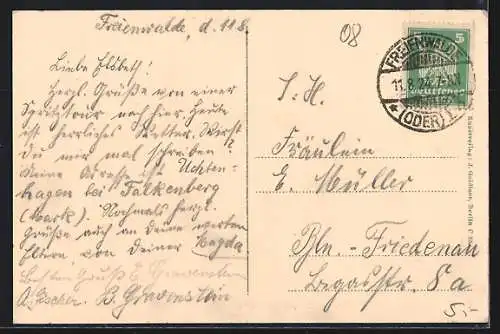 Freienwalde, d. 11.8.
08
Liebe Elsbeth!
Herzl. Grüße von einer
Spritztour nach hier. Heute
ist herrliches Wetter. Wirst
du mir mal schreiben?
Meine Adresse ist Uchten-
hagen bei Falkenberg
(Mark). Nochmals herzl.
Grüße auch an deine werten
Eltern von deiner Magda
Besten Gruß E. Gravenstein
B. Gravenstein
S. H.
Fräulein
E. Müller
Bln.-Friedenau
Begasstr. 8a
5 5
FREIENWALDE
11.8.
(ODER) 1
5,-